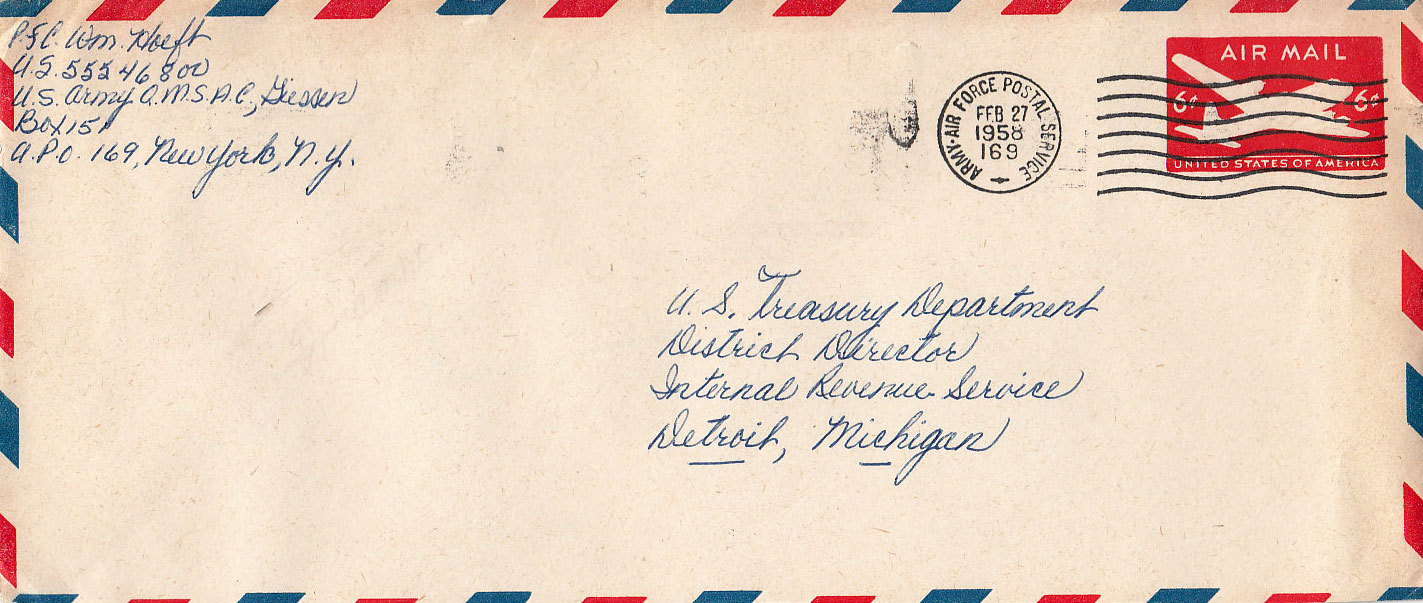 P.F.C. Wm. Hoeft
U.S. 555 46 800
U.S. Army Q.M.S.A.C., Giessen
Box 151
A.P.O. 169, New York, N.Y.
ARMY-AIR FORCE POSTAL SERVICE
FEB 27
1958
169
AIR MAIL
6¢ 6¢
UNITED STATES OF AMERICA
U. S. Treasury Department
District Director
Internal Revenue Service
Detroit, Michigan